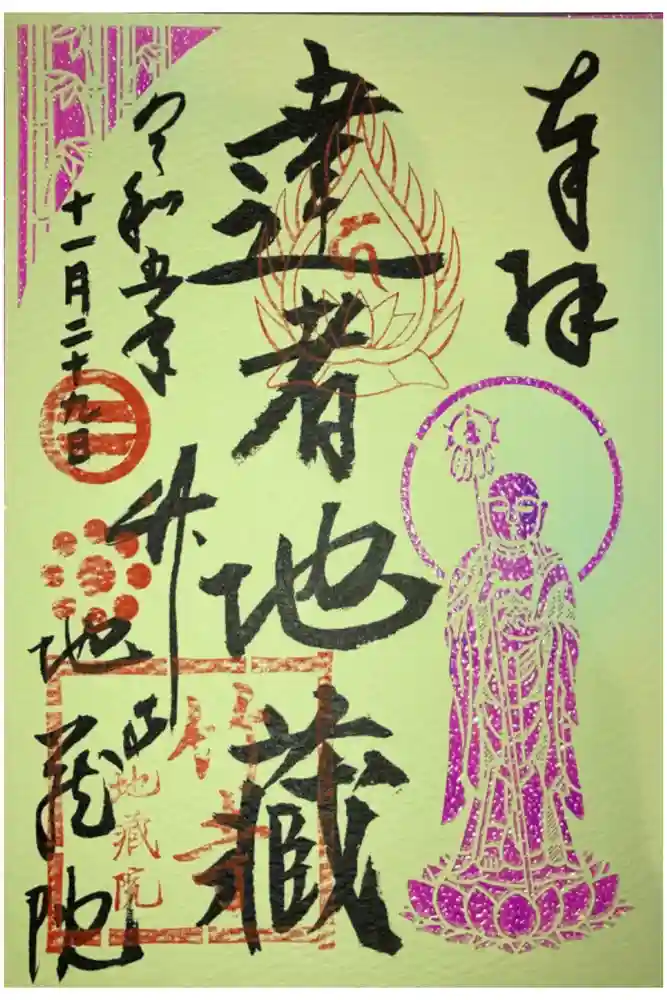 奉拝
達者地藏
令和五年
十一月二十九日
地蔵院
竹寺
地藏院